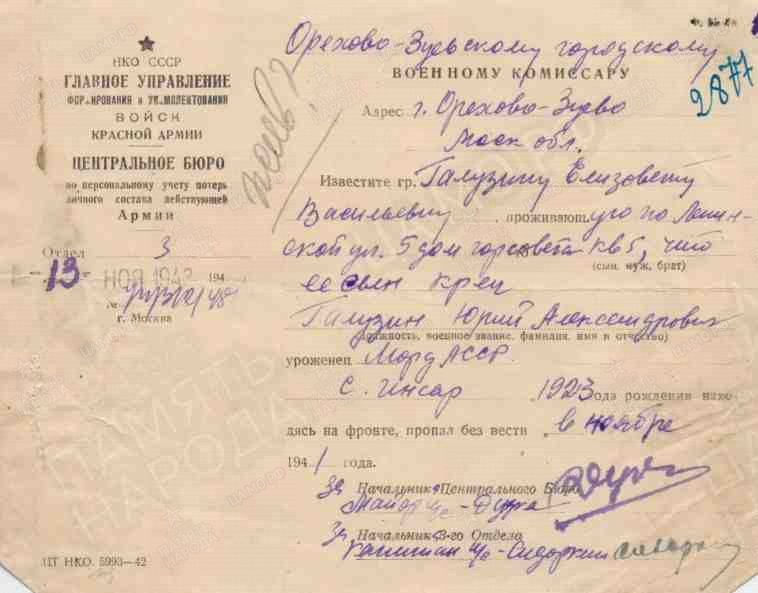 НКО СССР
ГЛАВНОЕ УПРАВЛЕНИЕ
ФОРМИРОВАНИЯ и УКОМПЛЕКТОВАНИЯ
ВОЙСК
КРАСНОЙ АРМИИ
ЦЕНТРАЛЬНОЕ БЮРО
по персональному учету потерь
личного состава действующей
Армии
Отдел 3
13 НОЯ 1943 194
№
г. Москва
Орехово-Зуевскому городскому
ВОЕННОМУ КОМИССАРУ
2877
Адрес г. Орехово-Зуево
Моск обл.
Известите гр. Галузину Елизовету
Васильевну, проживающ ую по Ленин-
ской ул. 5 дом горсовета кв 5, что
(сын, муж, брат)
ее сын кр-ец
Галузин Юрий Александрович
(должность, военное звание, фамилия, имя и отчество)
уроженец Морд АССР
с. Инсар 1923 года рождения нахо-
дясь на фронте, пропал без вести в ноябре
194 1 года.
Зам Начальник Центрального Бюро
Майор
Зам Начальник 3-го Отдела
Капитан Сидоркин
ЦТ НКО. 5993—42
ПАМЯТЬ НАРОДА